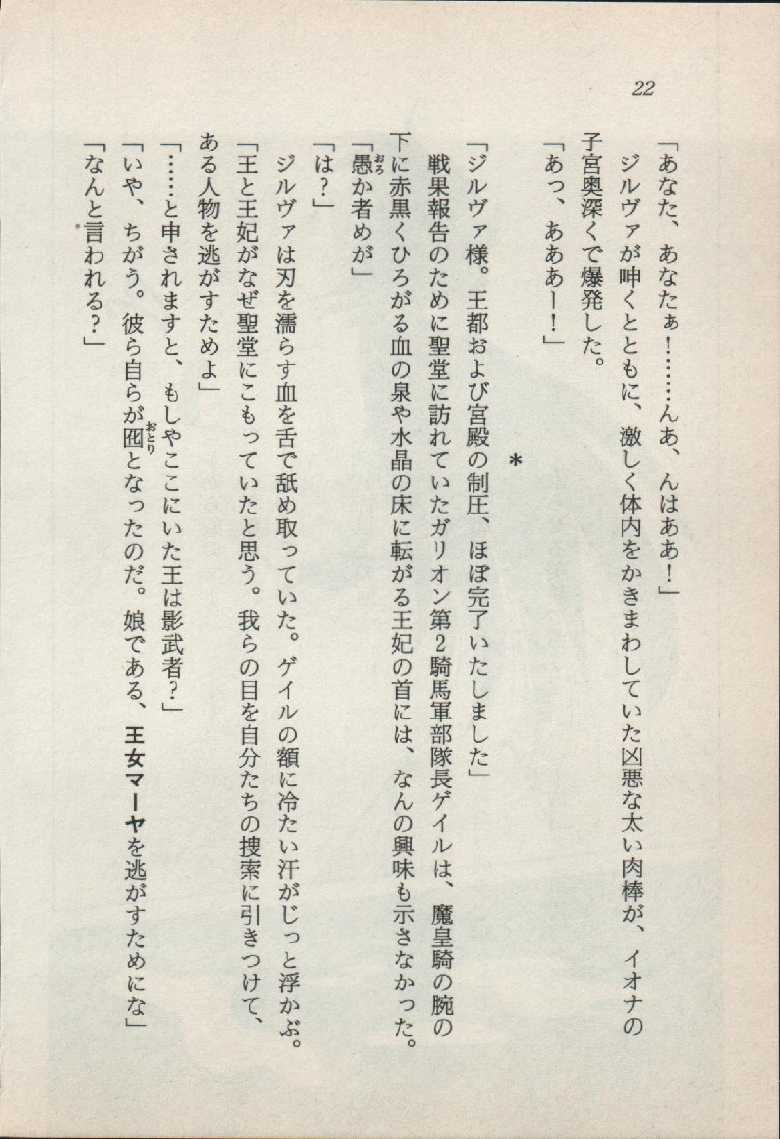 22
「あなた、あなたぁ！………んあ、んはああ！」
ジルヴァが呻くとともに、激しく体内をかきまわしていた凶悪な太い肉棒が、イオナの
子宮奥深くで爆発した。
「あっ、あああー！」
＊
「ジルヴァ様。王都および宮殿の制圧、ほぼ完了いたしました」
戦果報告のために聖堂に訪れていたガリオン第2騎馬軍部隊長ゲイルは、魔皇騎の腕の
下に赤黒くひろがる血の泉や水晶の床に転がる王妃の首には、なんの興味も示さなかった。
「愚か者めが」
「は？」
ジルヴァは刃を濡らす血を舌で舐め取っていた。ゲイルの額に冷たい汗がじっと浮かぶ。
「王と王妃がなぜ聖堂にこもっていたと思う。我らの目を自分たちの捜索に引きつけて、
ある人物を逃がすためよ」
「……と申されますと、もしやここにいた王は影武者？」
「いや、ちがう。彼ら自らが囮となったのだ。娘である、王女マーヤを逃がすためにな」
「なんと言われる？」